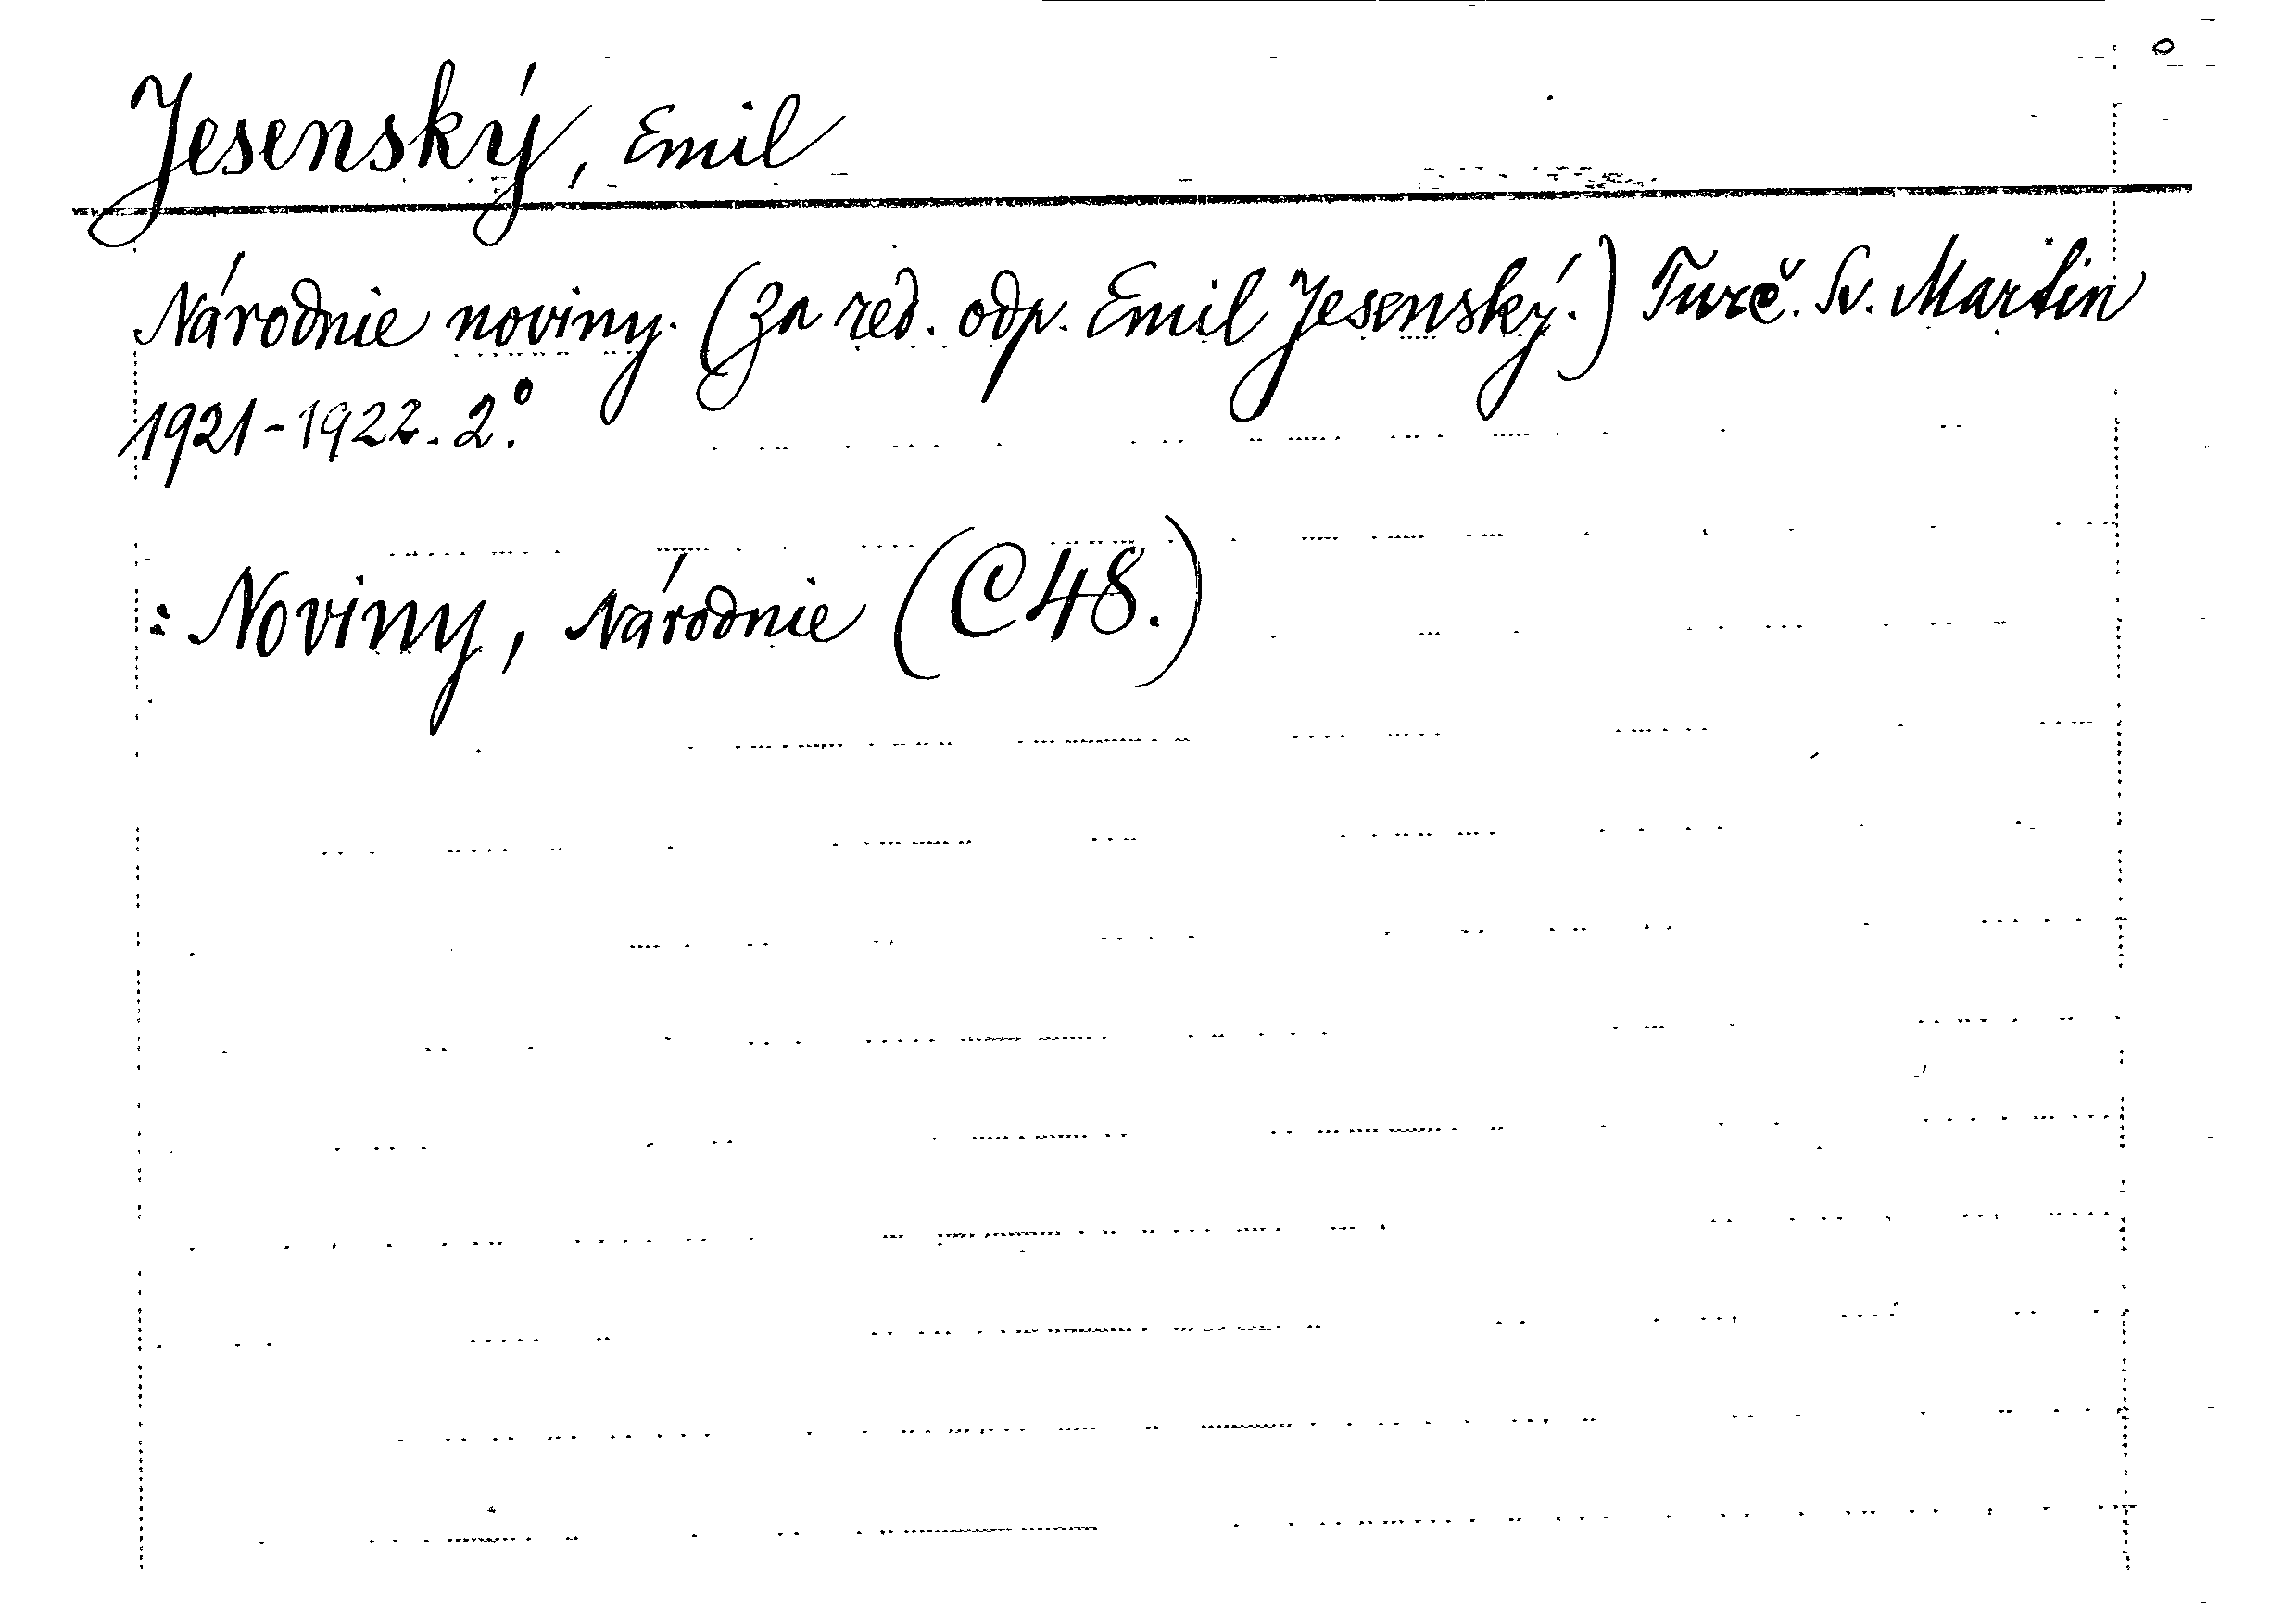 Jesenský, Emil
Národnie noviny. (Za red. odp. Emil Jesenský.) Turč. Sv. Martin
1921-1922. 2°.
: Noviny, Národnie (C 48.)